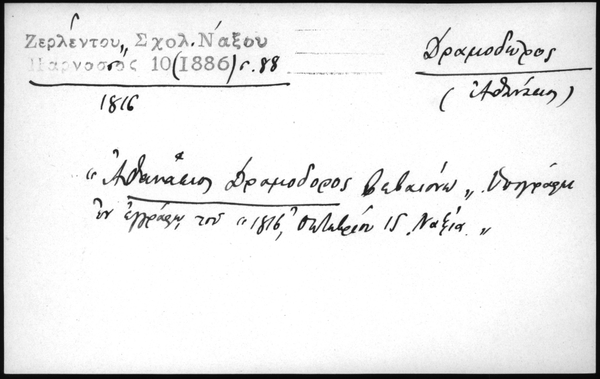 Ζερλέντου, Σχολ. Νάξου
Παρνασσός 10 (1886) σ. 88
1816
Δραμοδῶρος
(Ἀθανάσιος)
"Ἀθανάσιος Δραμοδορος βεβαιόνω" Ὑπογράφει
ἐν ἐγγράφῳ τοῦ "1816, Ὀκτωβρίου 15 Ναξία"